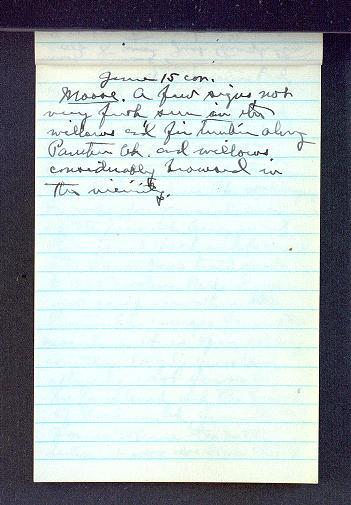 June 15 con.
Moose. A few signs not
very fresh seen in the
willows and fir timber along
Panther Ck. and willows
considerably browsed in
the vicinity.